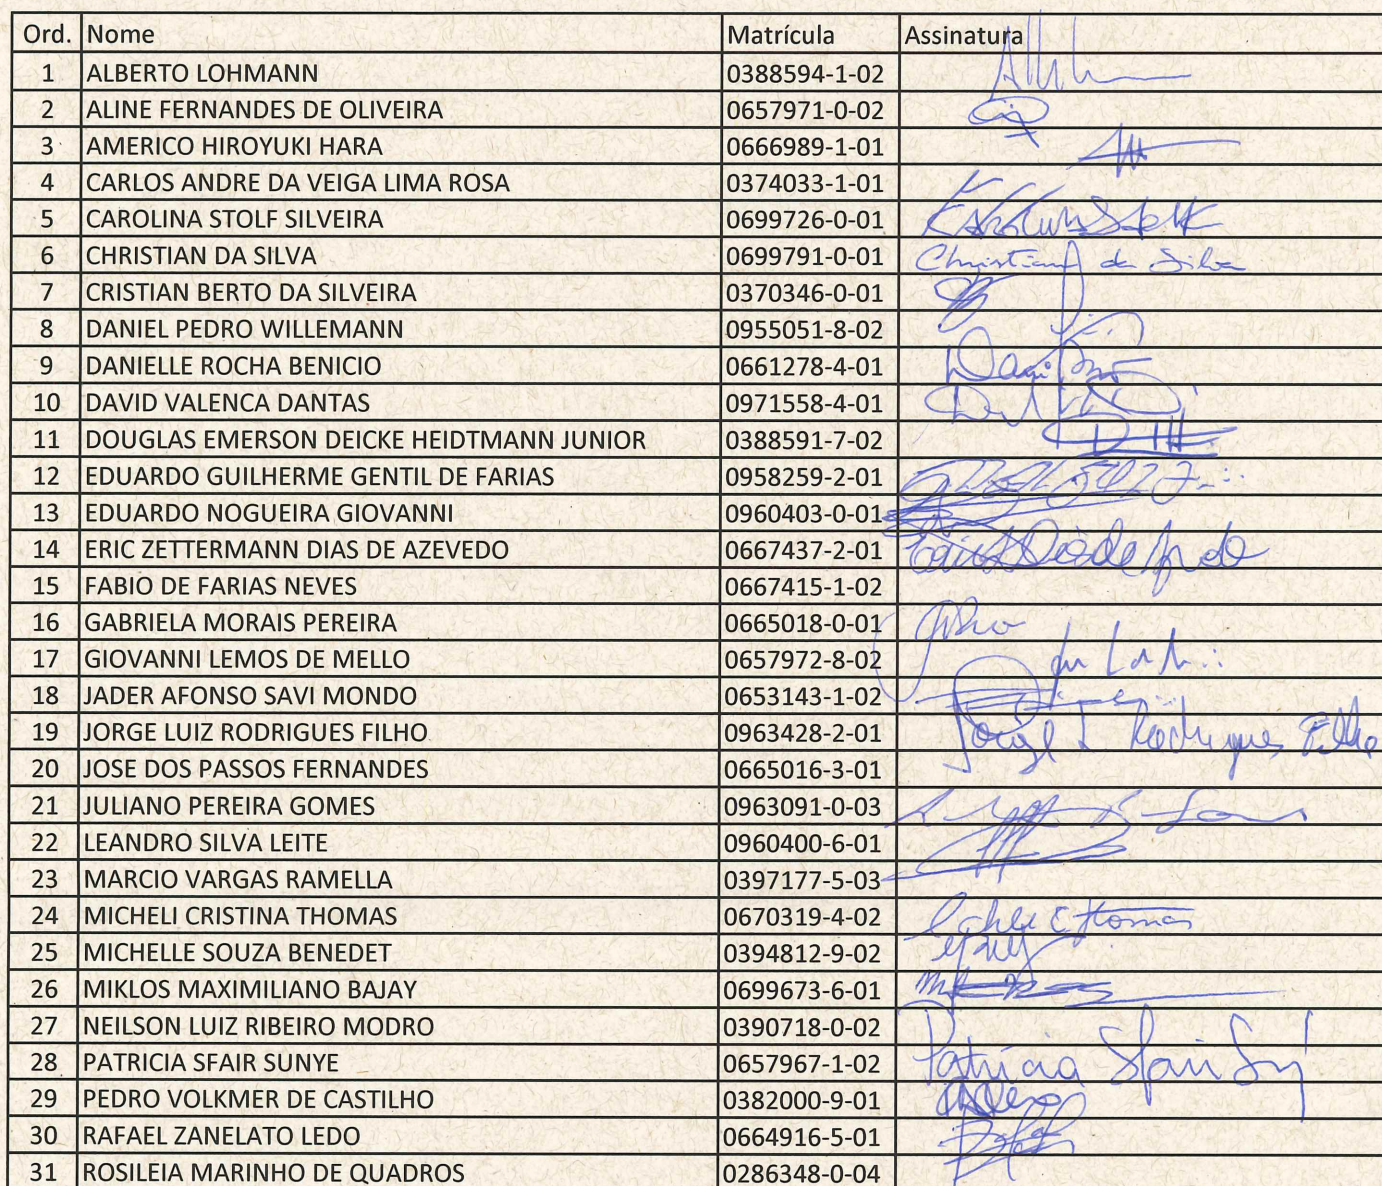 Ord. Nome Matrícula Assinatura
1 ALBERTO LOHMANN 0388594-1-02
2 ALINE FERNANDES DE OLIVEIRA 0657971-0-02
3 AMERICO HIROYUKI HARA 0666989-1-01
4 CARLOS ANDRE DA VEIGA LIMA ROSA 0374033-1-01
5 CAROLINA STOLF SILVEIRA 0699726-0-01
6 CHRISTIAN DA SILVA 0699791-0-01 Christian da Silva
7 CRISTIAN BERTO DA SILVEIRA 0370346-0-01
8 DANIEL PEDRO WILLEMANN 0955051-8-02
9 DANIELLE ROCHA BENICIO 0661278-4-01
10 DAVID VALENCA DANTAS 0971558-4-01
11 DOUGLAS EMERSON DEICKE HEIDTMANN JUNIOR 0388591-7-02
12 EDUARDO GUILHERME GENTIL DE FARIAS 0958259-2-01
13 EDUARDO NOGUEIRA GIOVANNI 0960403-0-01
14 ERIC ZETTERMANN DIAS DE AZEVEDO 0667437-2-01
15 FABIO DE FARIAS NEVES 0667415-1-02
16 GABRIELA MORAIS PEREIRA 0665018-0-01
17 GIOVANNI LEMOS DE MELLO 0657972-8-02
18 JADER AFONSO SAVI MONDO 0653143-1-02
19 JORGE LUIZ RODRIGUES FILHO 0963428-2-01 Jorge L Rodrigues Filho
20 JOSE DOS PASSOS FERNANDES 0665016-3-01
21 JULIANO PEREIRA GOMES 0963091-0-03
22 LEANDRO SILVA LEITE 0960400-6-01
23 MARCIO VARGAS RAMELLA 0397177-5-03
24 MICHELI CRISTINA THOMAS 0670319-4-02 Thomas
25 MICHELLE SOUZA BENEDET 0394812-9-02
26 MIKLOS MAXIMILIANO BAJAY 0699673-6-01
27 NEILSON LUIZ RIBEIRO MODRO 0390718-0-02
28 PATRICIA SFAIR SUNYE 0657967-1-02 Patricia Sfair Suny
29 PEDRO VOLKMER DE CASTILHO 0382000-9-01
30 RAFAEL ZANELATO LEDO 0664916-5-01
31 ROSILEIA MARINHO DE QUADROS 0286348-0-04